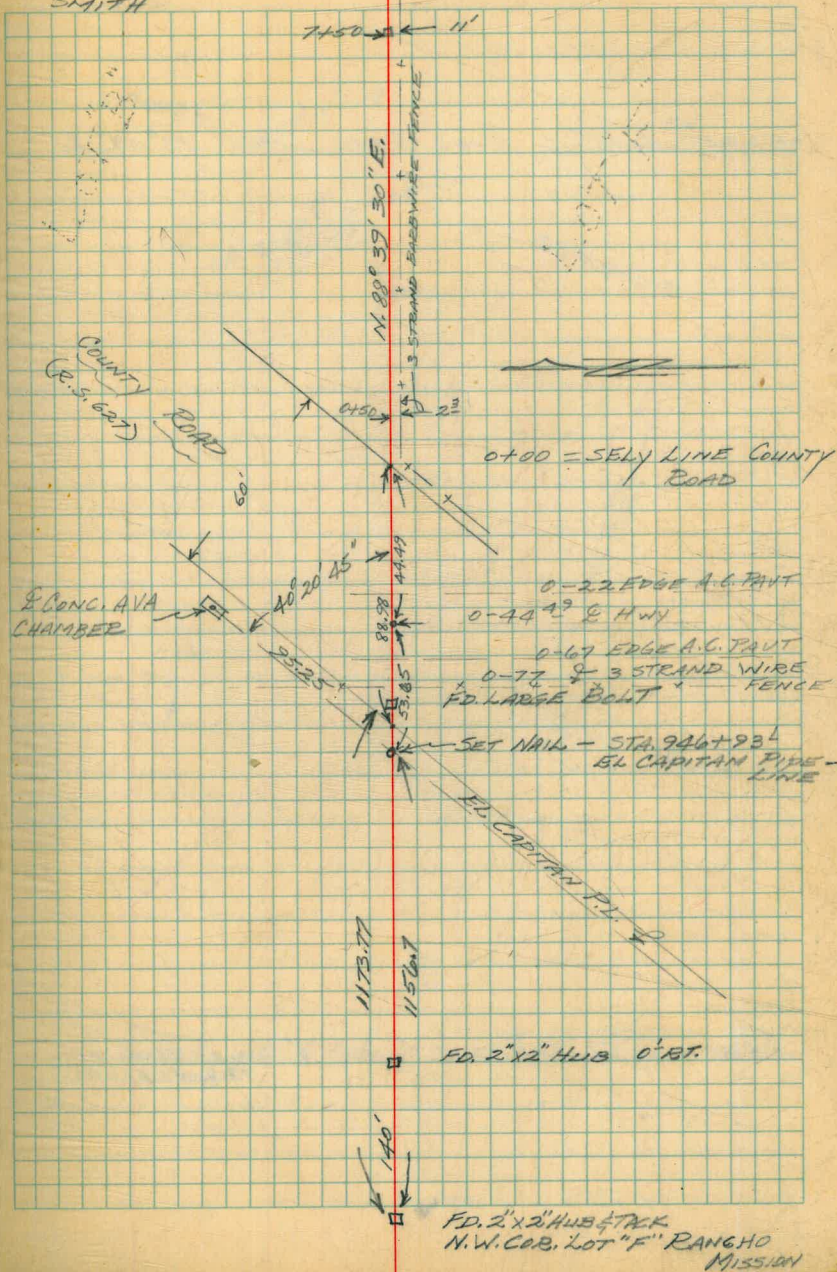 SMITH
7+50
11'
LOT "B"
LOT
N. 88° 39' 30" E.
3 STRAND BARBWIRE FENCE
COUNTY
ROAD
(R.S. 627)
0+50
2³
0+00 = SELY LINE COUNTY
ROAD
60'
40° 20' 45"
44.49
88.98
0-22 EDGE A.C. PAVT
0-44⁴⁹ ℄ HWY
0-67 EDGE A.C. PAVT
0-77 3 STRAND WIRE
FENCE
℄ CONC. AVA
CHAMBER
95.25
53.65
FD. LARGE BOLT
SET NAIL - STA. 946+93¹
EL CAPITAM PIPE-
LINE
EL CAPITAN P.L. ℄
1173.77
1156.7
FD. 2"x2" HUB 0¹ RT.
140'
FD. 2"x2" HUB & TACK
N.W. COR. LOT "F" RANCHO
MISSION